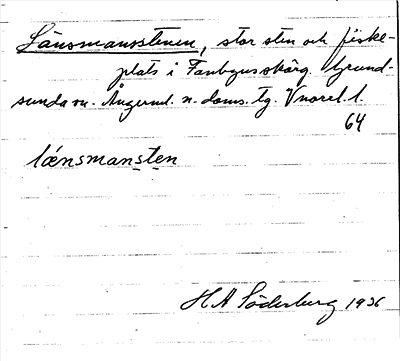 Länsmansstenen, stor sten och fiske-
plats i Fanbynsskärg. Grund-
sunda sn. Ångerml. n. doms. tg. V norrl. l.
64
lænsmansten
H A Söderberg 1936